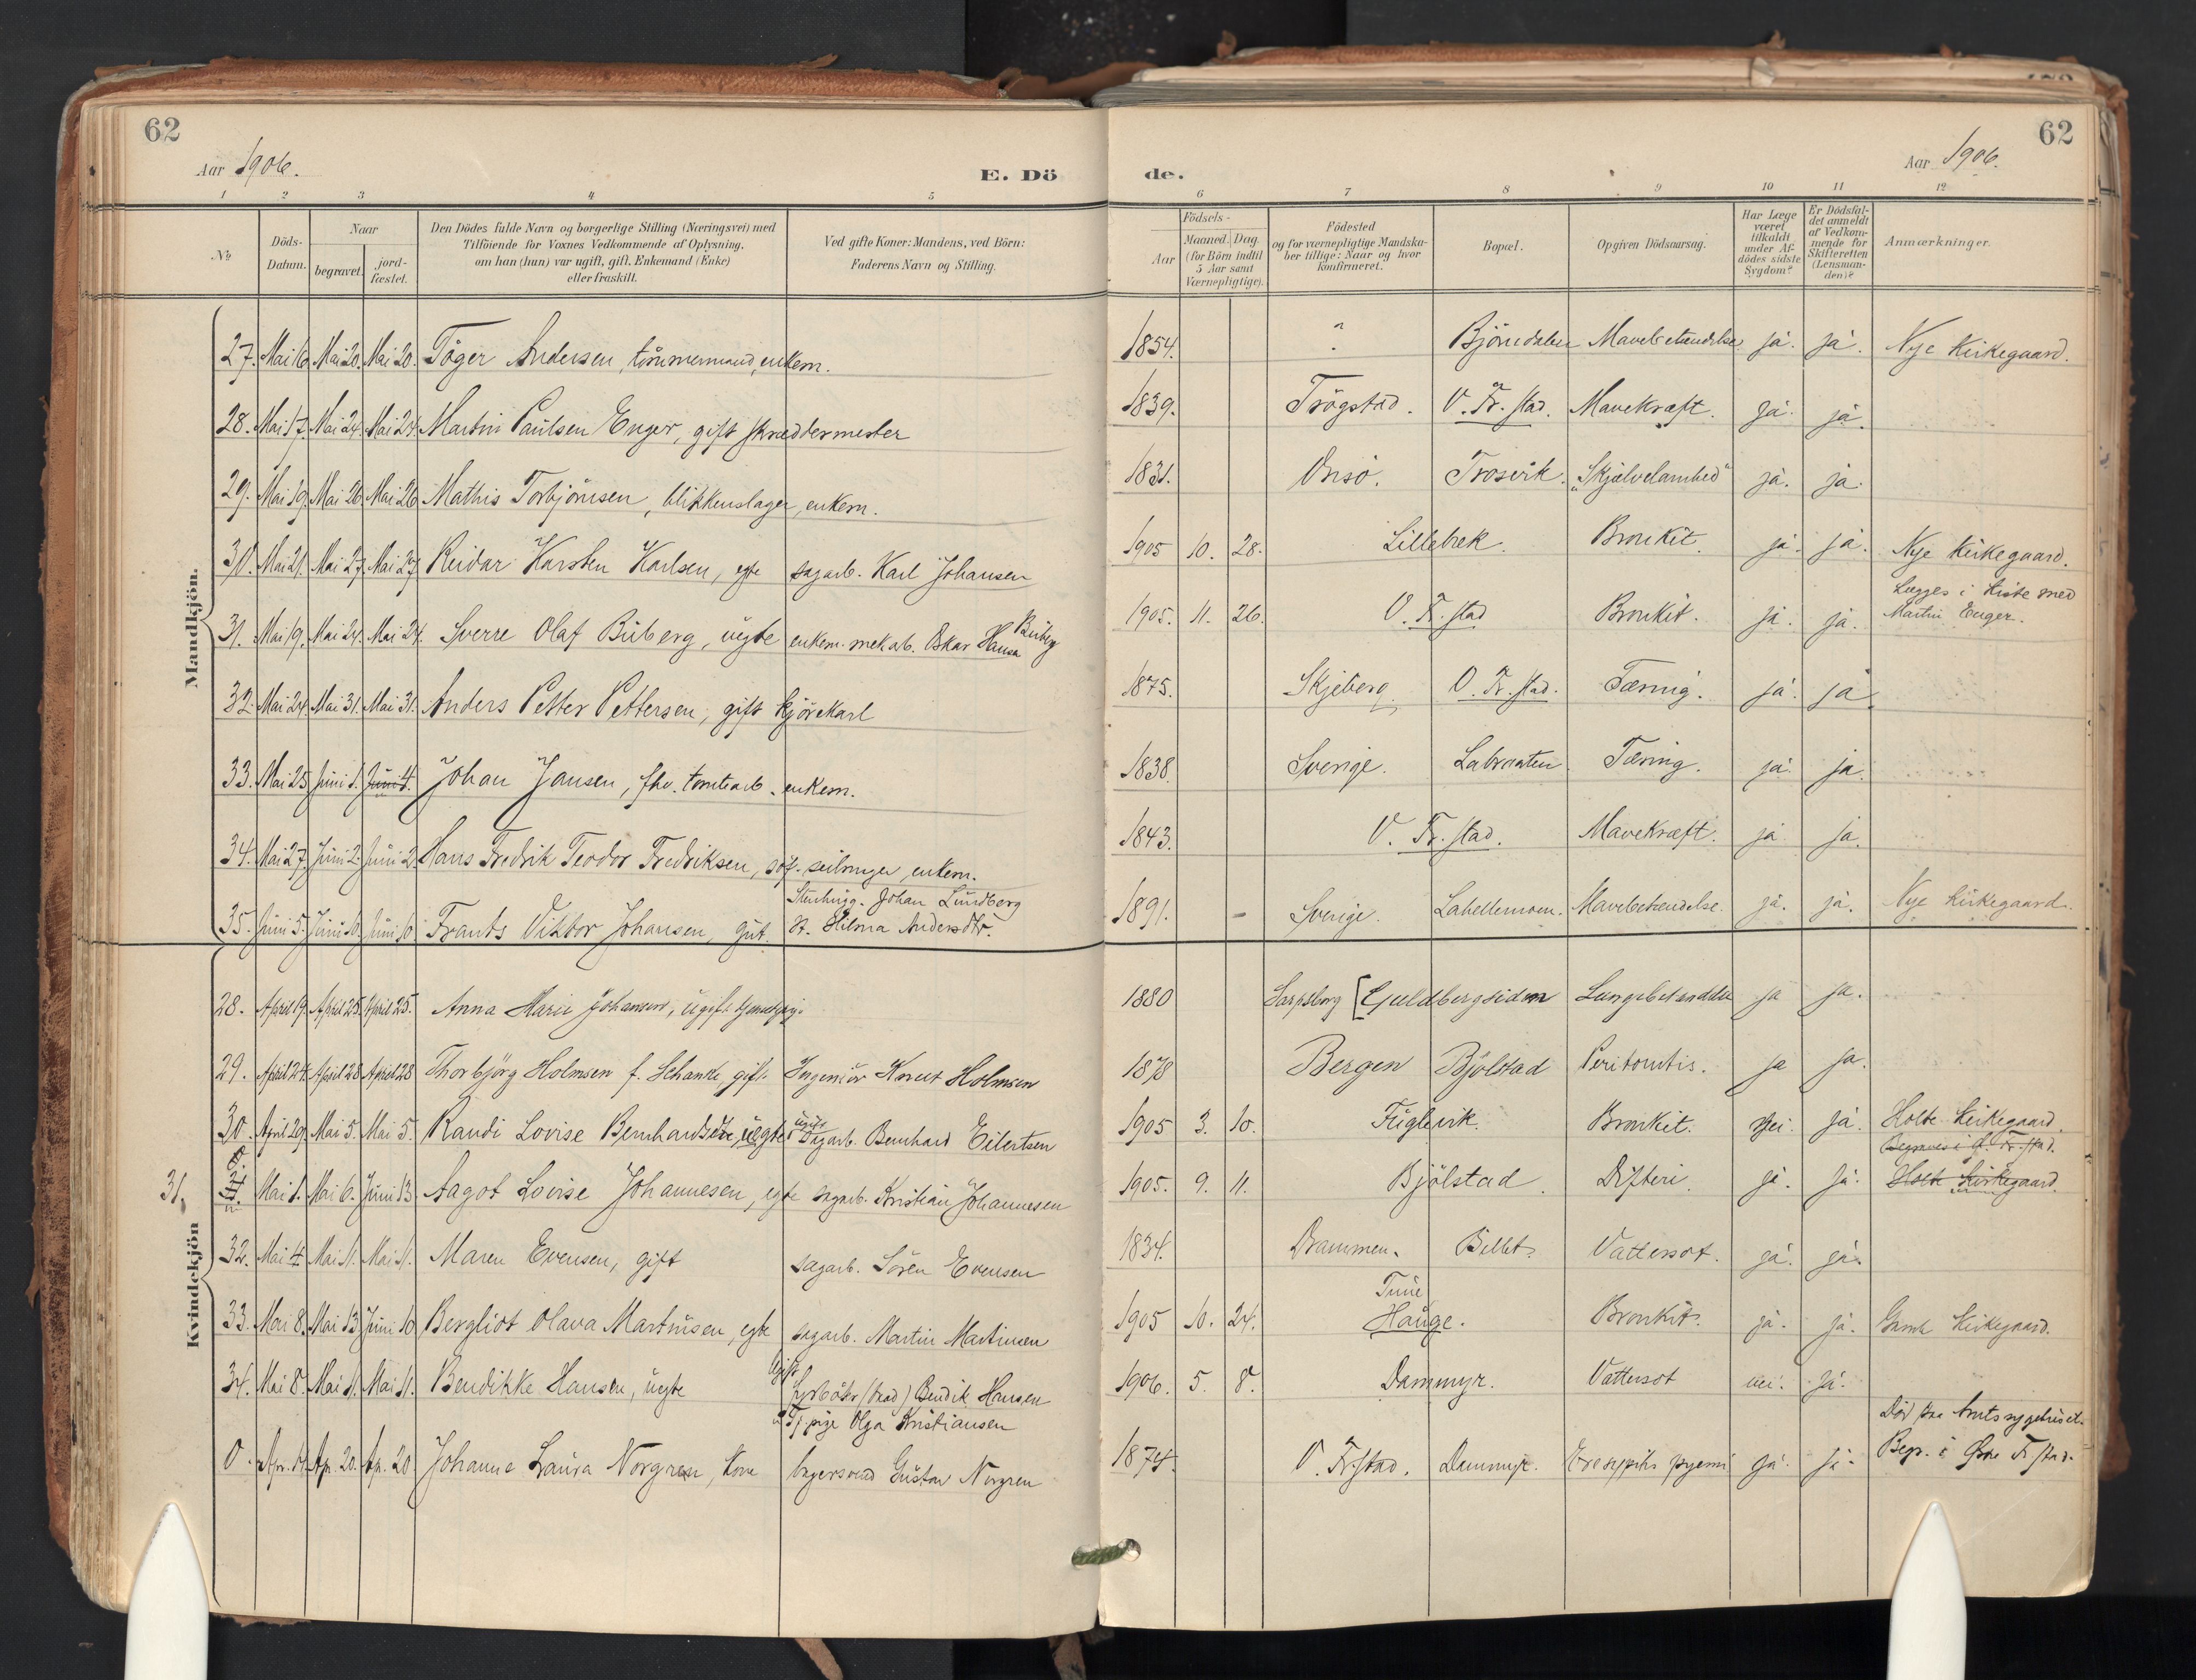 62
62
Aar 1906.
E. Dö
de.
Aar 1906.
1 2 3 4 5 6 7 8 9 10 11 12
No
Döds-
Datum.
Naar
begravet.
jord-
fæstet.
Den Dödes fulde Navn og borgerlige Stilling (Næringsvei) med
Tilföiende for Voxnes Vedkommende af Oplysning,
om han (hun) var ugift, gift, Enkemand (Enke)
eller fraskilt.
Ved gifte Koner: Mandens, ved Börn:
Faderens Navn og Stilling.
Födsels-
Aar
Maaned. Dag.
(for Börn indtil
5 Aar samt
Værnepligtige).
Födested
og for værnepligtige Mandska-
ber tillige: Naar og hvor
konfirmeret.
Bopæl.
Opgiven Dödsaarsag.
Har Læge
været
tilkaldt
under Af-
dödes sidste
Sygdom?
Er Dödsfal-
det anmeldt
af Vedkom-
mende for
Skifteretten
(Lensman-
den)?
Anmærkninger.
Mandkjön.
27. Mai 16. Mai 20. Mai 20. Töger Andersen, tömmermand, enkem. 1854. Björndalen Mavebetændelse ja. ja. Nye Kirkegaard.
28. Mai 17. Mai 24. Mai 24. Martin Paulsen Enger, gift skræddermester 1839. Trögstad. V. Fr. stad. Mavekræft. ja. ja.
29. Mai 19. Mai 26. Mai 26. Mathis Torbjörnsen, blikkenslager, enkem. 1831. Onsö. Trosvik. "Skjælvelamhed" ja. ja.
30. Mai 21. Mai 27. Mai 27. Reidar Karsten Karlsen, egte sagarb. Karl Johansen 1905 10. 28. Lillebæk. Bronkit. ja. ja. Nye Kirkegaard.
31. Mai 19. Mai 24. Mai 24. Sverre Olaf Buberg, uegte enkem. mek arb. Oskar Hansen Buberg 1905. 11. 26. V. Fr. stad Bronkit. ja. ja. Lægges i Kiste med
Martin Enger.
32. Mai 24. Mai 31. Mai 31. Anders Petter Pettersen, gift kjörekarl 1875. Skjeberg. V. Fr. stad. Tæring. ja. ja.
33. Mai 25. Juni 1. Juni 4. Johan Jansen, fhv. tomtearb. enkem. 1838. Sverige. Labraaten. Tæring. ja. ja.
34. Mai 27. Juni 2. Juni 2. Hans Fredrik Teodor Fredriksen, enkem. 1843. V. Fr. stad. Mavekræft. ja. ja.
35. Juni 5. Juni 10. Juni 10. Frants Viktor Johansen, gut. Stenhugg. Johan Lundberg
H. Hilma Andersdtr. 1891. - Sverige. Lahellemoen. Mavebetændelse. ja. ja. Nye Kirkegaard.
Kvindekjön
28. April 19. April 25. April 25. Anna Marie Johansen, ugift 1880 Sarpsborg Guldbergsiden Lungebetændelse ja ja.
29. April 24. April 28 April 28 Thorbjörg Holmsen f. Schanke, gift. Ingeniör Knut Holmsen 1878 Bergen Bjölstad Peritonitis. ja ja.
30. April 29. Mai 5. Mai 5. Randi Lovise Bernhardsdtr., uegte ugift Sagarb. Bernhard Eilertsen 1905 3. 10. Fuglevik. Bronkit. Nei. ja. Holte Kirkegaard.
31. Mai 1. Mai 6. Juni 13 Aagot Lovise Johannesen, egte sagarb. Kristian Johannesen 1905. 9. 11. Bjölstad. Difteri. ja. ja. Begraves i Ö. Fr. stad.
Holte Kirkegaard.
32. Mai 4. Mai 11. Mai 11. Maren Evensen, gift sagarb. Sören Evensen 1834. Drammen. Bellet. Vattersot. ja. ja.
33. Mai 8. Mai 13. Juni 10 Bergliot Olava Martinsen, egte sagarb. Martin Martinsen 1905 10. 24. Tune
Hauge. Bronkit. ja. ja. Gamle Kirkegaard.
34. Mai 8. Mai 11. Mai 11. Bendikke Hansen, uegte Ugift (död) Bendik Hansen
Tj. pige Olga Kristiansen 1906. 5. 8. Dammyr. Vattersot nei. ja.
0. Apr. Ap. 20. Ap. 20 Johanne Laura Norgren, kone bagersvend Gustav Norgren 1874. V. Fr. stad. Dammyr. ja. ja. Död paa Amtssygehuset.
Begr. i Östre Fr. stad.